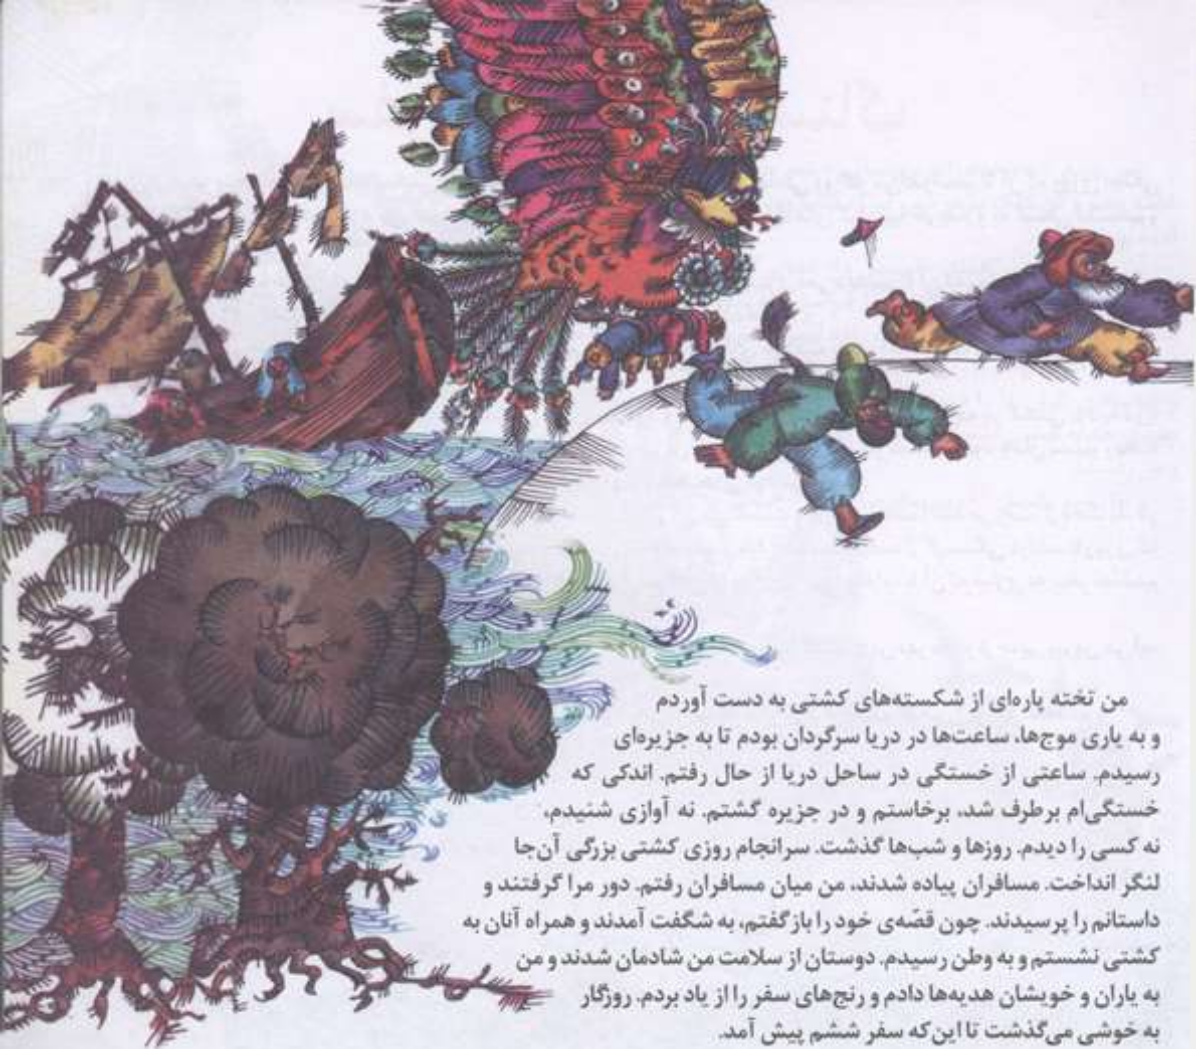 من تخته پاره‌ای از شکسته‌های کشتی به دست آوردم
و به یاری موج‌ها، ساعت‌ها در دریا سرگردان بودم تا به جزیره‌ای
رسیدم. ساعتی از خستگی در ساحل دریا از حال رفتم. اندکی که
خستگی‌ام برطرف شد، برخاستم و در جزیره گشتم. نه آوازی شنیدم،
نه کسی را دیدم. روزها و شب‌ها گذشت. سرانجام روزی کشتی بزرگی آن‌جا
لنگر انداخت. مسافران پیاده شدند، من میان مسافران رفتم. دور مرا گرفتند و
داستانم را پرسیدند. چون قصّه‌ی خود را بازگفتم، به شگفت آمدند و همراه آنان به
کشتی نشستم و به وطن رسیدم. دوستان از سلامت من شادمان شدند و من
به یاران و خویشان هدیه‌ها دادم و رنج‌های سفر را از یاد بردم. روزگار
به خوشی می‌گذشت تا این‌که سفر ششم پیش آمد.